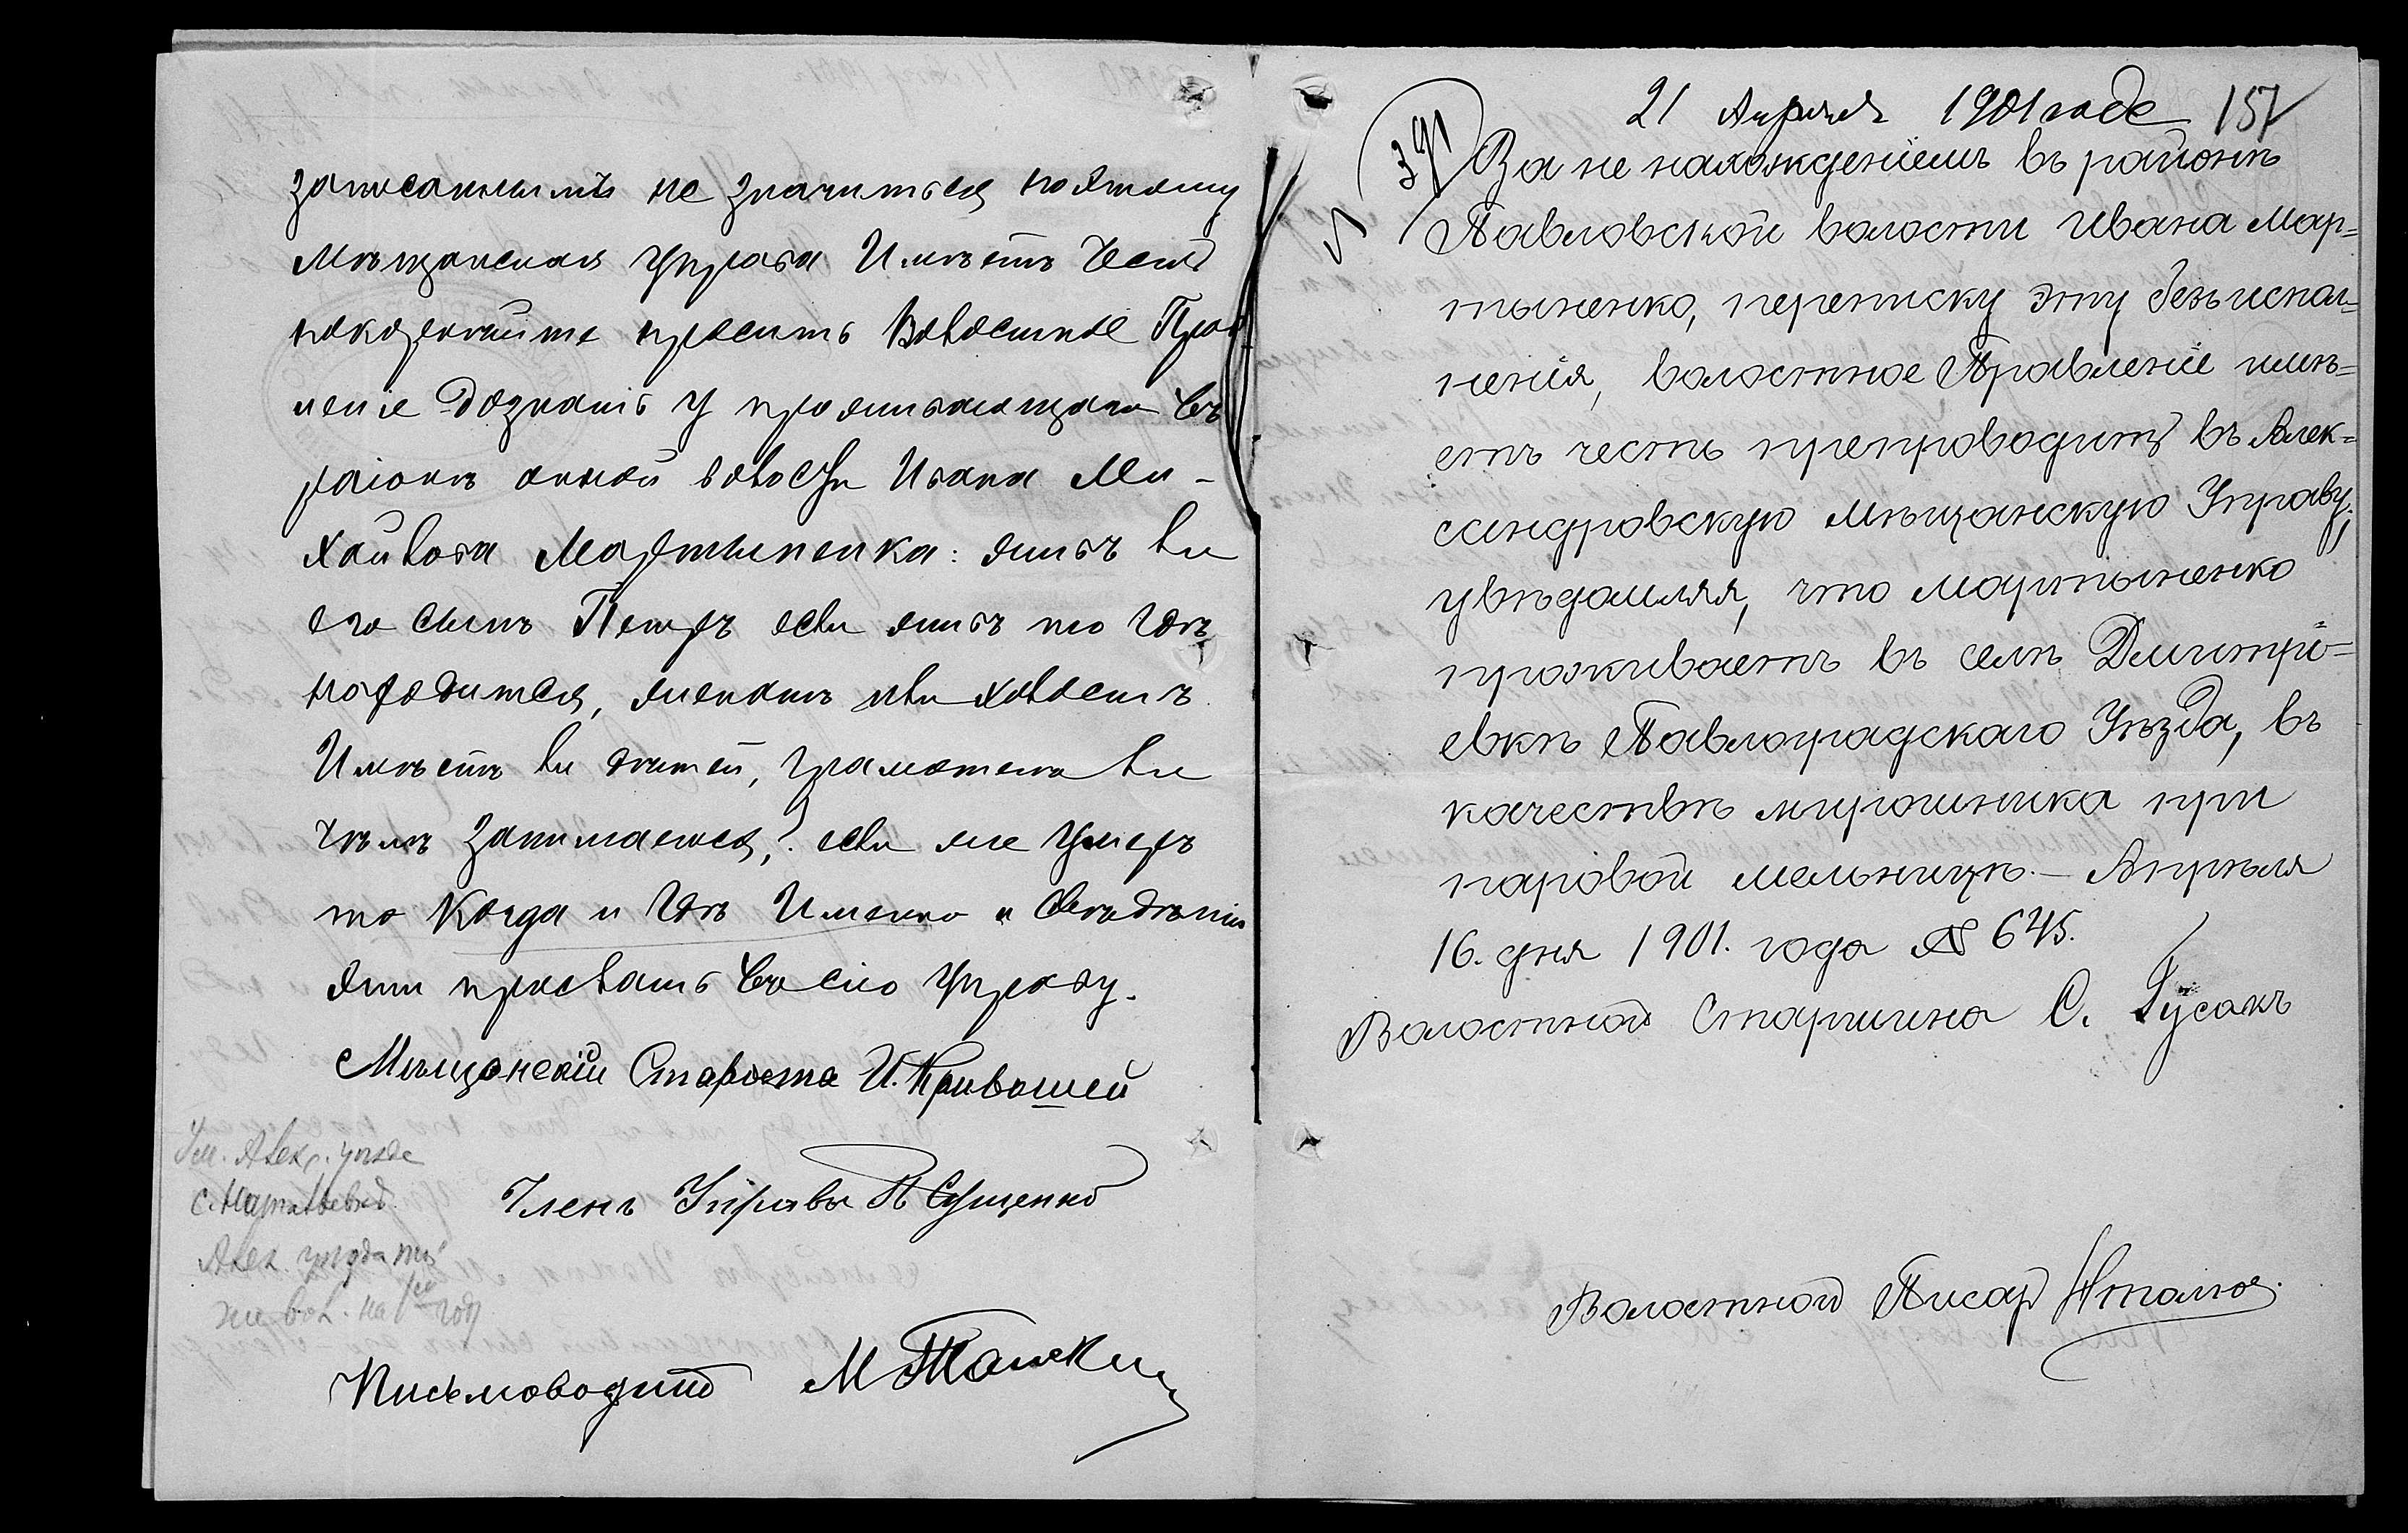 записаннымъ не значиться поэтому
Мѣщанская Управа Имѣетъ Честь
покорнѣйше просить Волостное Прав
леніе дознать у проживающаго въ
раіонѣ онной волости Ивана Ми-
хайлова Мартыненка: живъ ли
его сынъ Петръ если живъ то гдѣ
находится, женатъ или холостъ
Имѣетъ ли дѣтей, грамотенъ ли
чѣмъ занимается,? если же умеръ
то когда и гдѣ Именно и Свѣдѣнія
эти прислать въ сію Управу.
Мѣщанскій Староста И. Кривошей
Членъ Управы П Сущенко
с.
Алек. уѣзда
вол. на 1ый годъ
Письмоводит
21 Апрѣля 1901 года 157
391
За не нахожденіемъ въ районѣ
Павловской волости Ивана Мар=
тыненко, переписку эту безъ испол=
ненія, волостное Правленіе имѣ=
етъ честь препроводить въ Алек=
сандровскую мѣщанскую Управу,
увѣдомляя, что Мартыненко
проживаетъ въ селѣ Дмитрі=
евкѣ Павлоградскаго Уѣзда, въ
качествѣ мирошника при
паровой мельницѣ. – Апрѣля
16. дня 1901. года № 645.
Волостной Старшина С. Гусакъ
Волостной Писар